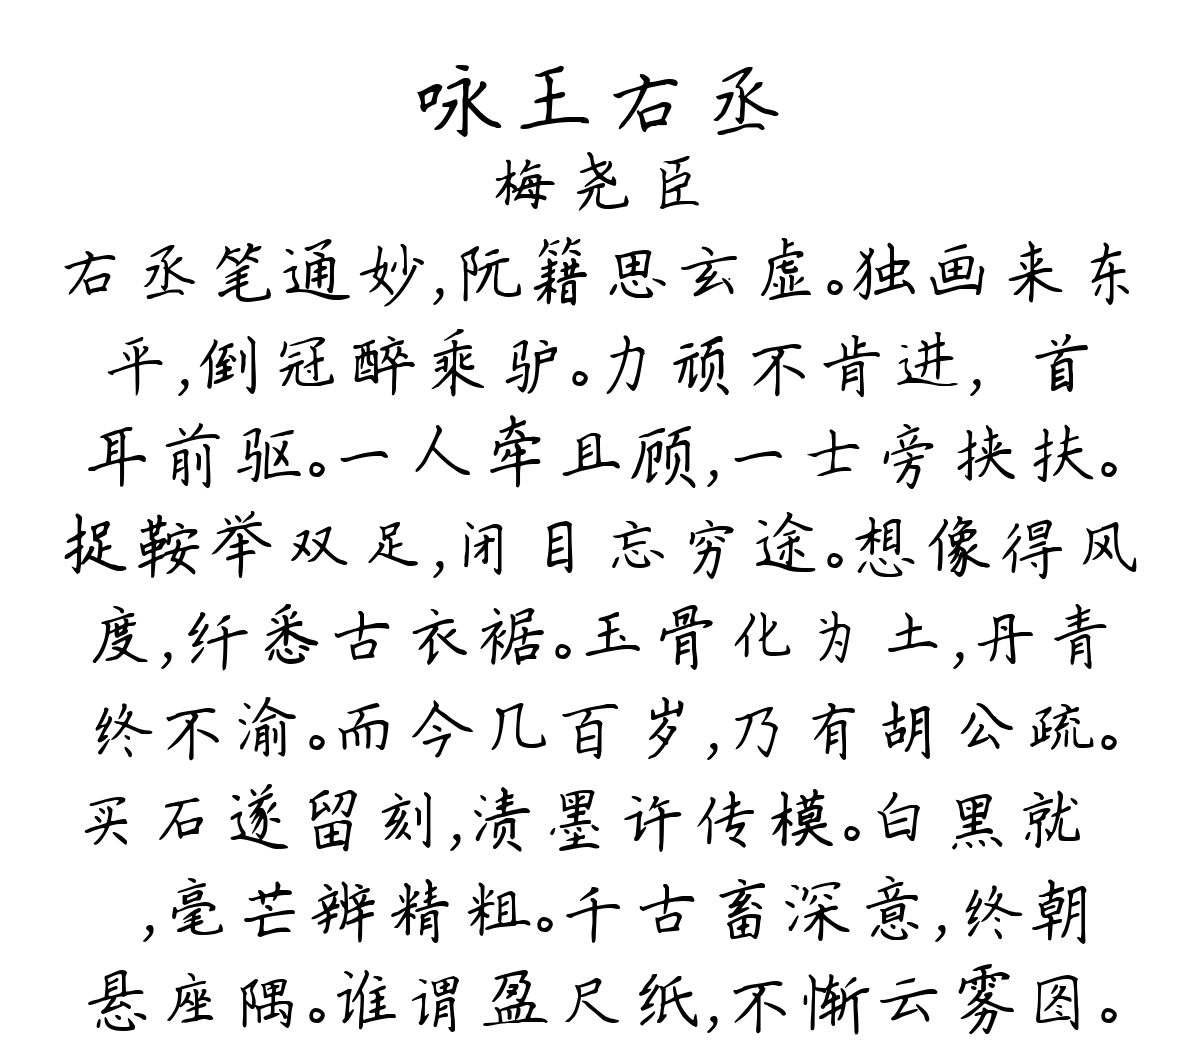 咏王右丞
梅尧臣
右丞笔通妙,阮籍思玄虚。独画来东
平,倒冠醉乘驴。力顽不肯进, 首
耳前驱。一人牵且顾,一士旁挟扶。
捉鞍举双足,闭目忘穷途。想像得风
度,纤悉古衣裾。玉骨化为土,丹青
终不渝。而今几百岁,乃有胡公疏。
买石遂留刻,渍墨许传模。白黑就
,毫芒辨精粗。千古畜深意,终朝
悬座隅。谁谓盈尺纸,不惭云雾图。